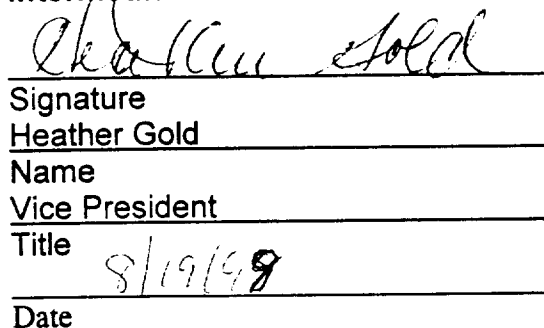 Heather Gold
Signature
Heather Gold
Name
Vice President
Title
8/19/98
Date